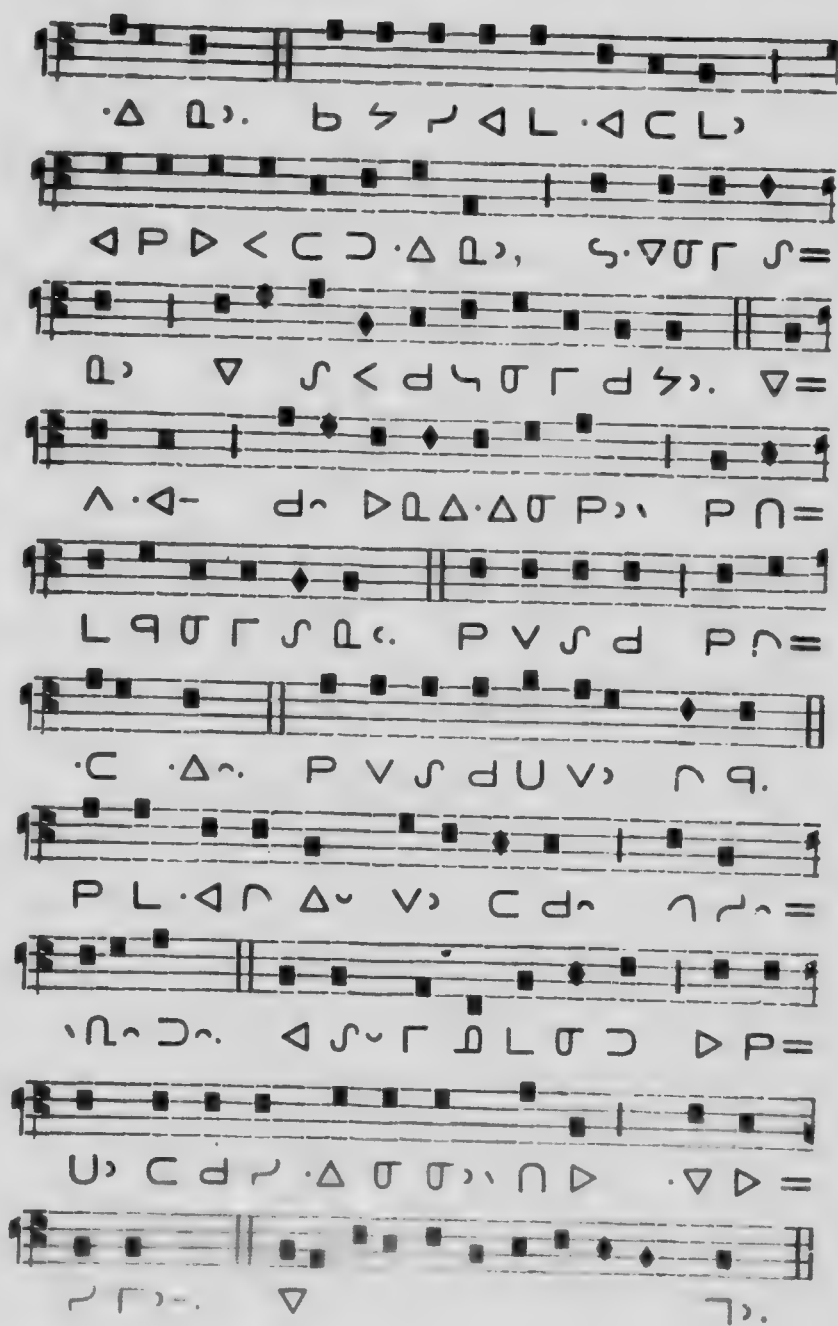 ·ᐃ ᓇᐣ. ᑲ ᔭ ᓯ ᐊ ᒪ ·ᐊ ᑕ ᒪᐣ
ᐊ ᑭ ᐅ ᐸ ᑕ ᑐ ·ᐃ ᓇᐣ, ᔕ·ᐁᓂᒥ ᔑ=
ᓇᐣ ᐁ ᔑ ᐸ ᑯ ᓭ ᓂ ᒥ ᑯ ᔭᐣ. ᐁ=
ᐱ ·ᐊᐨ ᑯᐢ ᐅᓇᐃ·ᐃᓂ ᑭᐣᐠ ᑭ ᑎ=
ᒪ ᑫ ᓂ ᒥ ᔑ ᓇᒼ. ᑭ ᐯ ᔑ ᑯ ᑭ ᒋ=
·ᑕ ·ᐃᐢ. ᑭ ᐯ ᔑ ᑯ ᑌ ᐯᐣ ᒋ ᑫ.
ᑭ ᒪ ·ᐊ ᒋ ᐃᐡ ᐯᐣ ᑕ ᑯᐢ ᒉ ᓯᐢ=
ᐠᕆᐢᑐᐢ. ᐊ ᔑᐡ ᒥ ᓄ ᒪ ᓂ ᑐ ᐅ ᑭ=
ᑌᐣ ᑕ ᑯ ᓯ ·ᐃ ᓂ ᓂᐣᐠ ᑎ ᐅ ·ᐁ ᐅ=
ᓯ ᒥᐣᐨ. ᐁ ᒣᐣ.